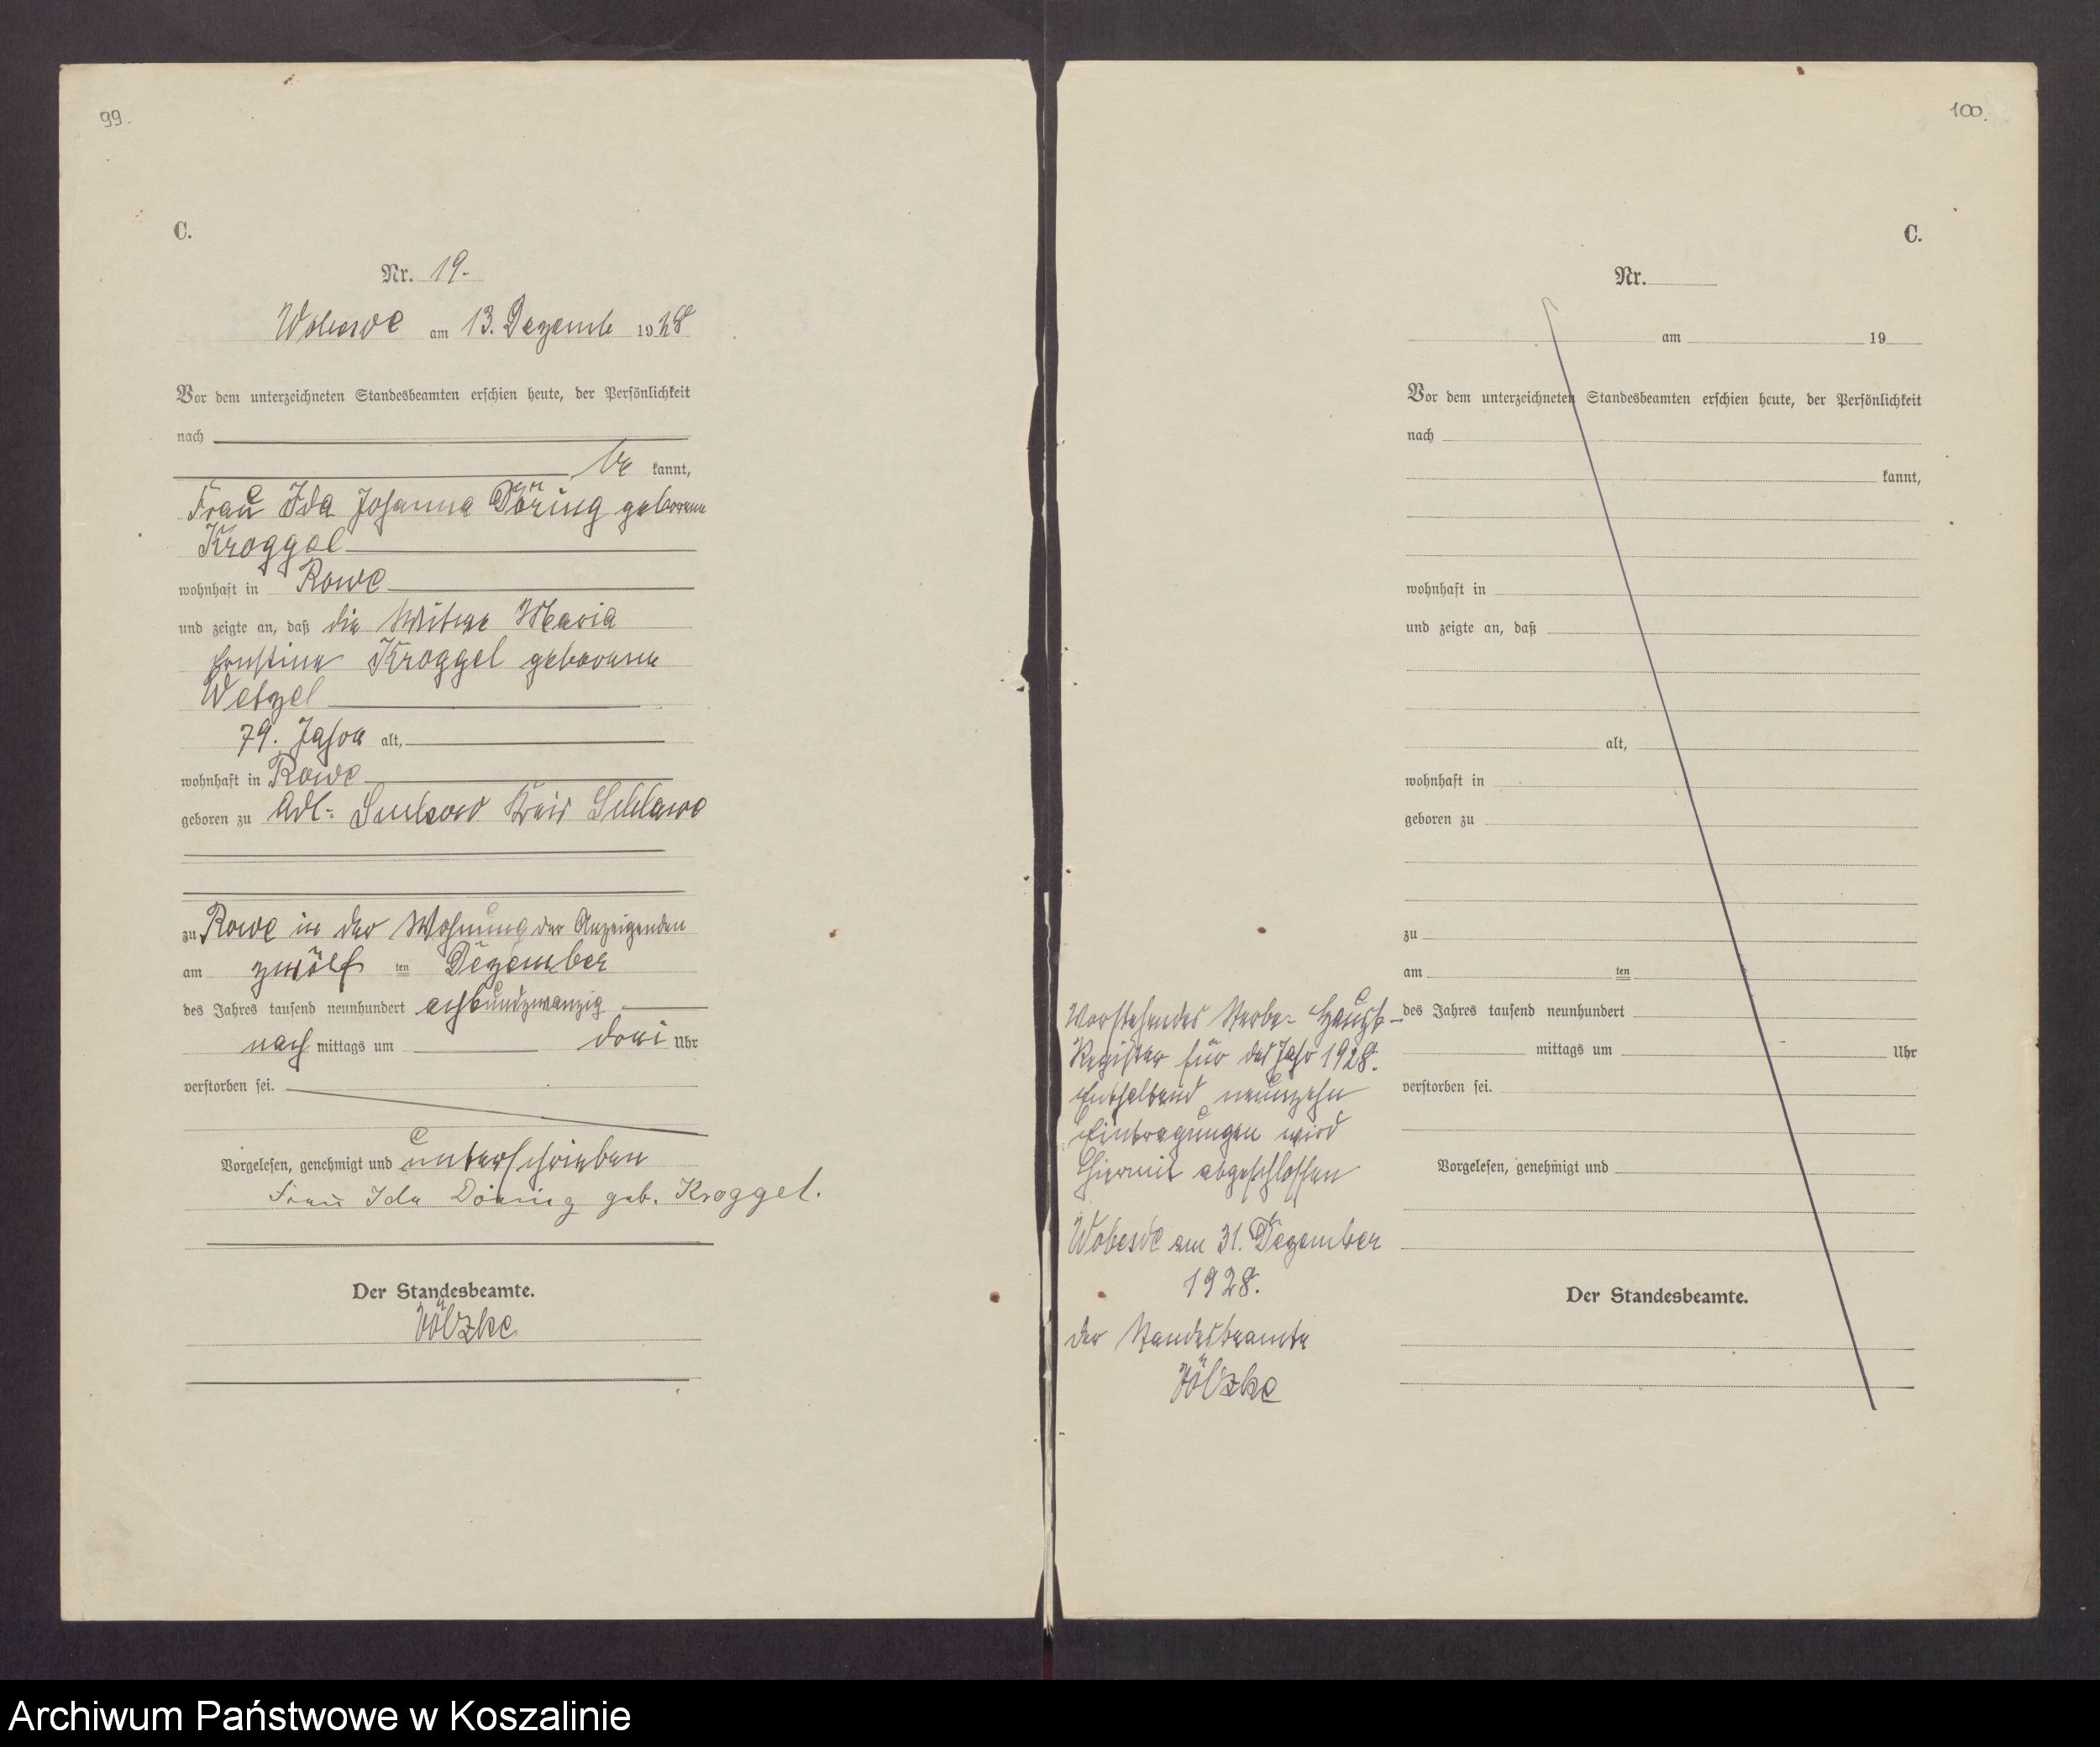 99.
C.
Nr. 19.
Wobesde am 13. Dezemb 1928
Vor dem unterzeichneten Standesbeamten erschien heute, der Persönlichkeit
nach
be kannt,
Frau Ida Johanna Döring geborene
Kroggel
wohnhaft in Rowe
und zeigte an, daß die Witwe Maria
Ernstine Kroggel geborene
Wetzel
79. Jahre alt,
wohnhaft in Rowe
geboren zu Adl: Kreis Schlawe
zu Rowe in der Wohnung der Anzeigenden
am zwölf ten Dezember
des Jahres tausend neunhundert achtundzwanzig
nach mittags um drei Uhr
verstorben sei.
Vorgelesen, genehmigt und unterschrieben
Frau Ida Döring geb. Kroggel.
Der Standesbeamte.
Völzke
100.
C.
Nr.
am 19
Vor dem unterzeichneten Standesbeamten erschien heute, der Persönlichkeit
nach
kannt,
wohnhaft in
und zeigte an, daß
alt,
wohnhaft in
geboren zu
zu
am ten
des Jahres tausend neunhundert
mittags um Uhr
verstorben sei.
Vorgelesen, genehmigt und
Der Standesbeamte.
Vorstehendes Sterbe-Haupt-
Register für das Jahr 1928.
Enthaltend neunzehn
Eintragungen wird
hiermit abgeschlossen
Wobesde am 31. Dezember
1928.
der Standesbeamte
Völzke
Archiwum Państwowe w Koszalinie